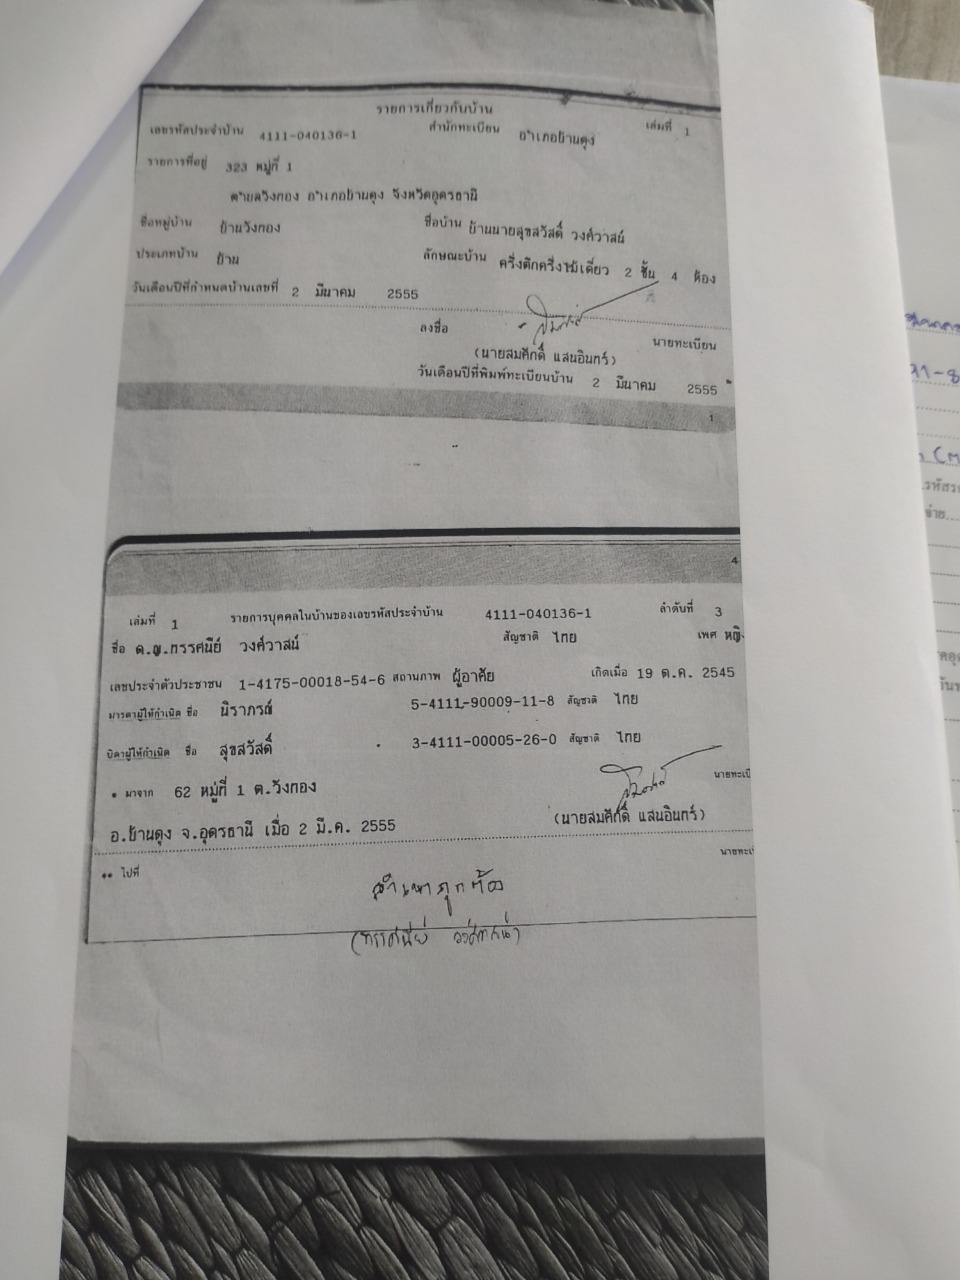 รายการเกี่ยวกับบ้าน
เล่มที่ 1
เลขรหัสประจำบ้าน 4111-040136-1 สำนักทะเบียน อำเภอบ้านดุง
รายการที่อยู่ 323 หมู่ที่ 1
ตำบลวังทอง อำเภอบ้านดุง จังหวัดอุดรธานี
ชื่อหมู่บ้าน บ้านวังทอง ชื่อบ้าน บ้านนายสุขสวัสดิ์ วงศ์วาสน์
ประเภทบ้าน บ้าน ลักษณะบ้าน ครึ่งตึกครึ่งไม้เดี่ยว 2 ชั้น 4 ห้อง
วันเดือนปีที่กำหนดบ้านเลขที่ 2 มีนาคม 2555
ลงชื่อ นายทะเบียน
(นายสมศักดิ์ แสนอินทร์)
วันเดือนปีที่พิมพ์ทะเบียนบ้าน 2 มีนาคม 2555
1
4
เล่มที่ 1 รายการบุคคลในบ้านของเลขรหัสประจำบ้าน 4111-040136-1 ลำดับที่ 3
ชื่อ ด.ญ.ทรรศนีย์ วงศ์วาสน์ สัญชาติ ไทย เพศ หญิง
เลขประจำตัวประชาชน 1-4175-00018-54-6 สถานภาพ ผู้อาศัย เกิดเมื่อ 19 ต.ค. 2545
มารดาผู้ให้กำเนิด ชื่อ นิราภรณ์ 5-4111-90009-11-8 สัญชาติ ไทย
บิดาผู้ให้กำเนิด ชื่อ สุขสวัสดิ์ 3-4111-00005-26-0 สัญชาติ ไทย
* มาจาก 62 หมู่ที่ 1 ต.วังทอง นายทะเบี
อ.บ้านดุง จ.อุดรธานี เมื่อ 2 มี.ค. 2555 (นายสมศักดิ์ แสนอินทร์)
** ไปที่ นายทะเบี
สำเนาถูกต้อง
(ทรรศนีย์ วงศ์วาสน์)